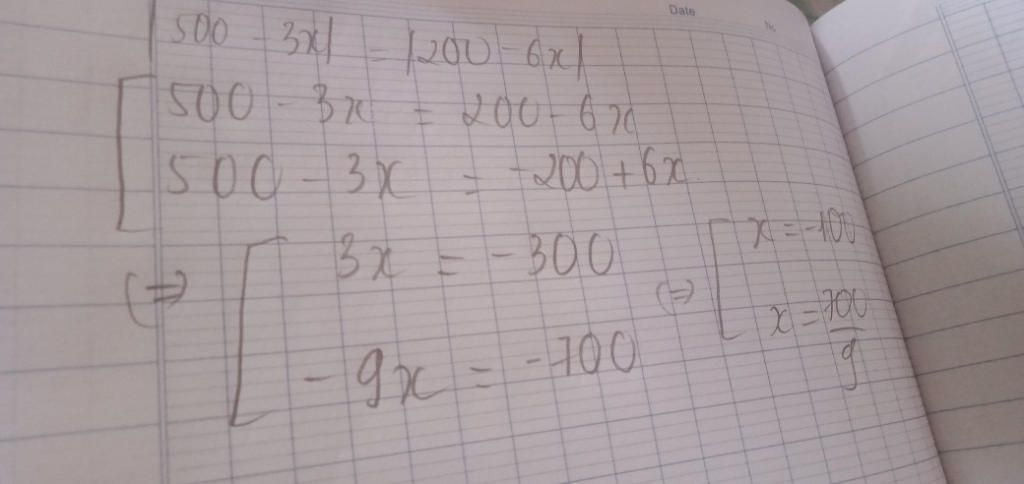 Date
No.
|500 - 3x| = |200 - 6x|
500 - 3x = 200 - 6x
500 - 3x = -200 + 6x
(=) 3x = -300 (=) x = -100
-9x = -700 x = 700/9